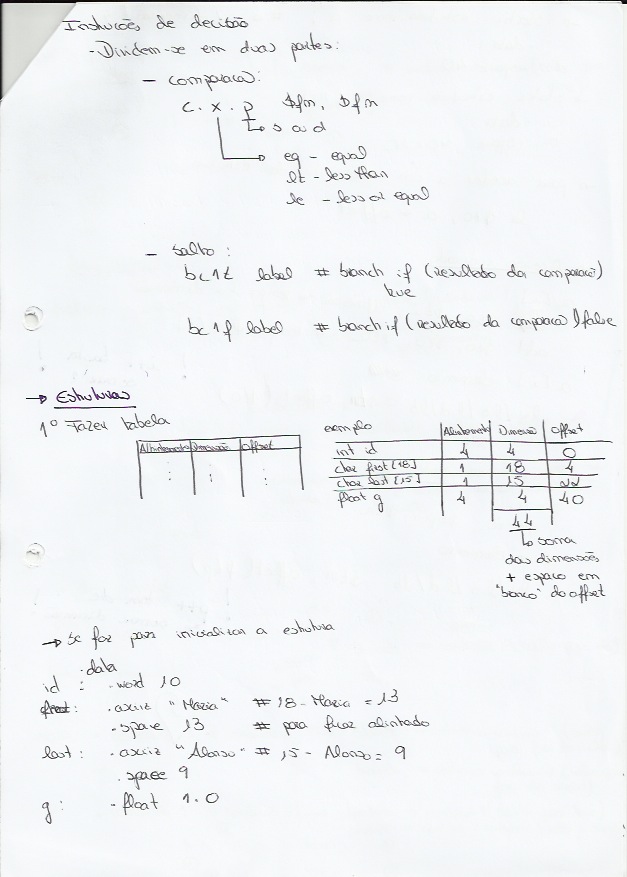 Instruções de decisão
- Dividem-se em duas partes:
- comparaca:
c.x.p $fm, $fn
s ou d
eq - equal
lt - less than
le - less or equal
- salto:
bc1t label # branch if (resultado da comparacã)
true
bc1f label # branch if (resultado da comparaca) false
→ Estruturas
1º Fazer tabela
Alinhamento Dimensão Offset
exemplo Alinhamento Dimensão Offset
int id 4 4 0
char first [18] 1 18 4
char last [15] 1 15 22
float g 4 4 40
44
soma
das dimensões
+ espaco em
"branco" do offset
→ Se for para inicializar a estrutura
.data
id : .word 10
: .asciiz "Maria" # 18 - Maria = 13
.space 13 # para ficar alinhado
last : .asciiz "Alonso" # 15 - Alonso = 9
.space 9
g : .float 1.0